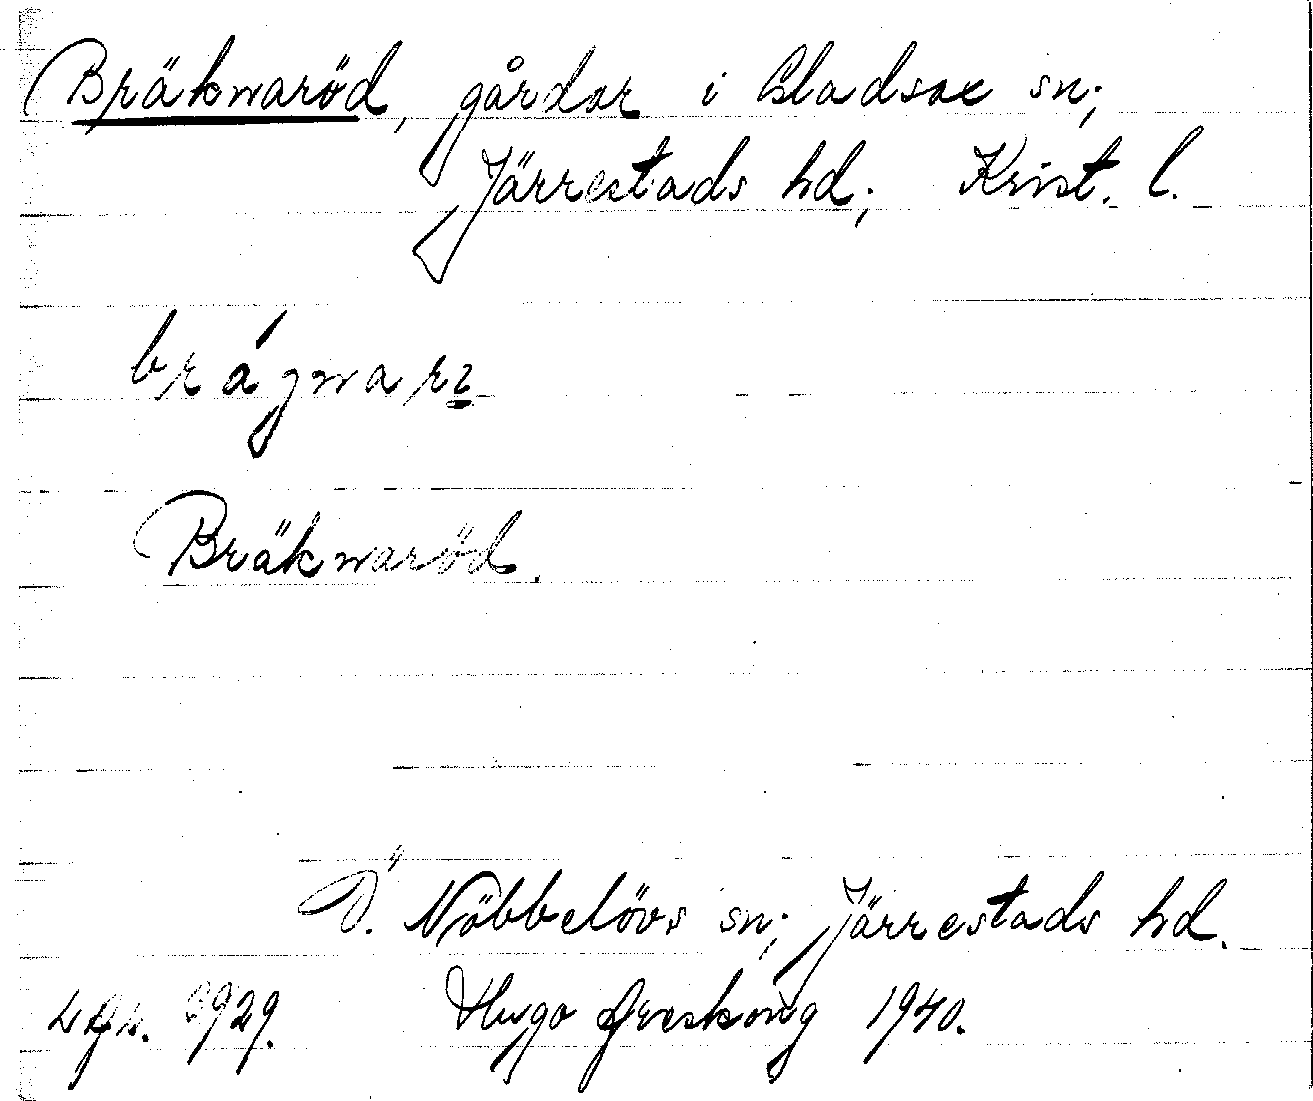 Bräkwaröd, gårdar i Gladsax sn;
Järrestads hd; Krist. l.
brágwarı
Bräkwaröd.
Ö. Nöbbelövs sn; Järrestads hd.
Hugo Areskoug 1940.